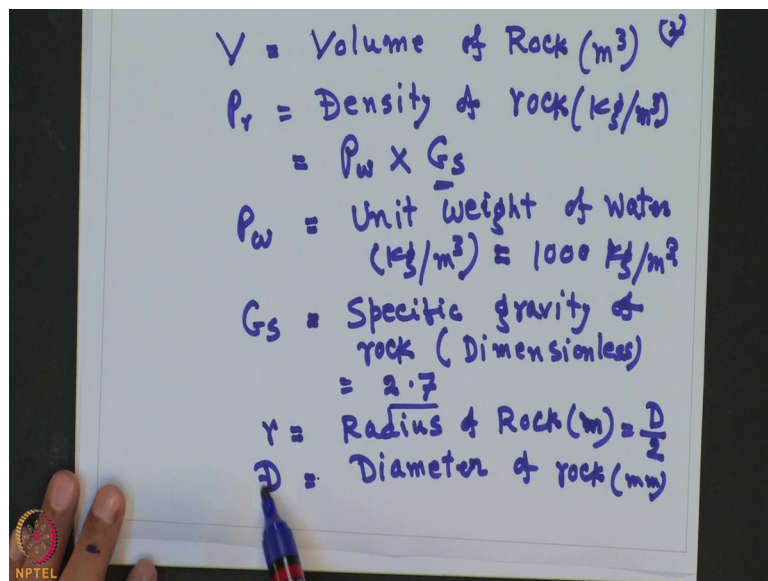 V = Volume of Rock (m³) (2)
ρr = Density of rock (Kg/m³)
= ρw × Gs
ρω = Unit weight of water
(Kg/m³) = 1000 Kg/m³
Gs = Specific gravity of
rock (Dimensionless)
= 2.7
r = Radius of Rock (m) = D/2
D = Diameter of rock (mm)
NPTEL